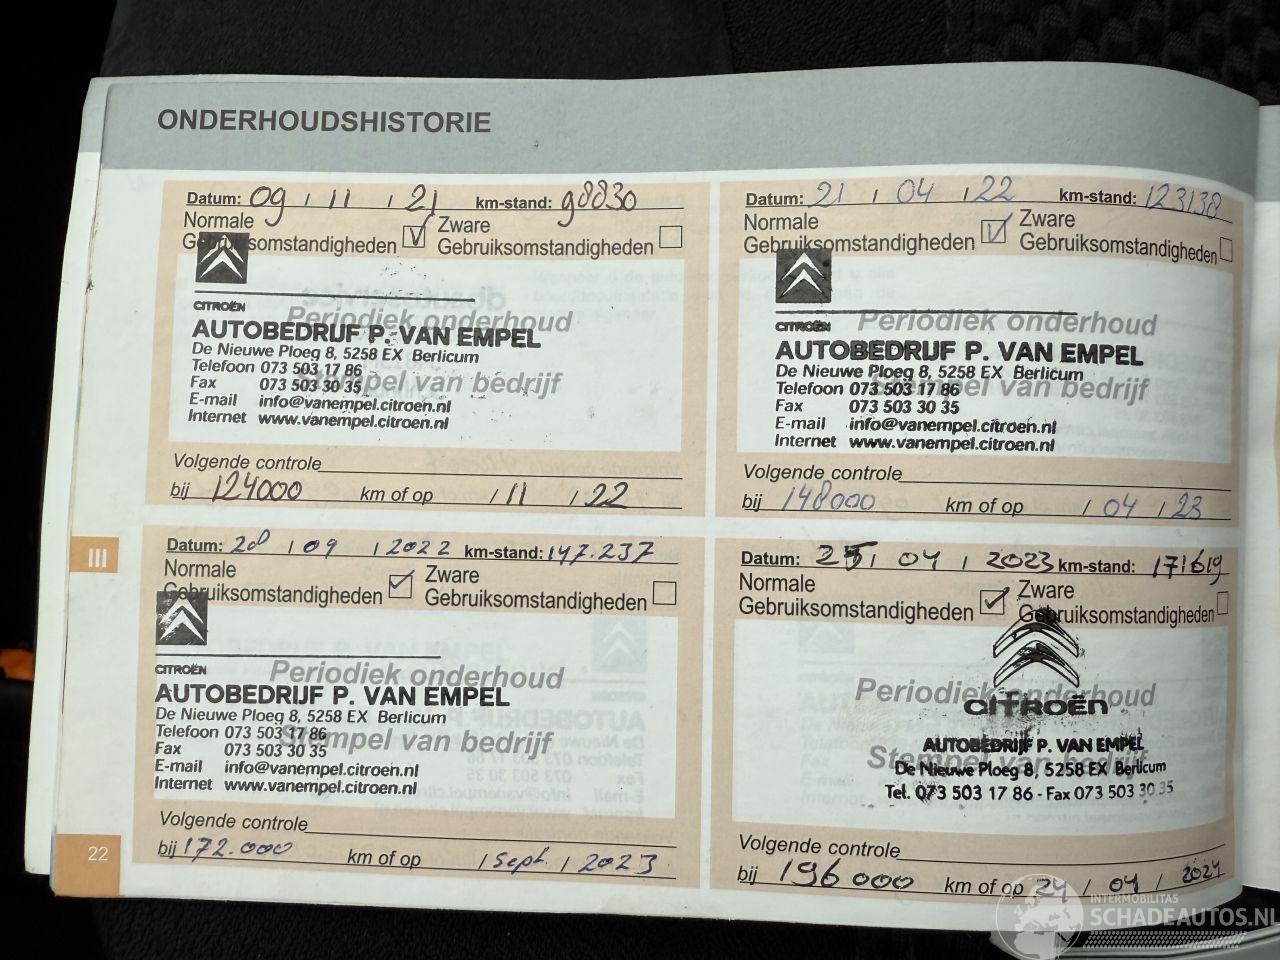 ONDERHOUDSHISTORIE
Datum: 09 / 11 / 21 km-stand: 98830
Normale Gebruiksomstandigheden Zware Gebruiksomstandigheden
CITROËN
Periodiek onderhoud
AUTOBEDRIJF P. VAN EMPEL
De Nieuwe Ploeg 8, 5258 EX Berlicum
Telefoon 073 503 17 86
Stempel van bedrijf
Fax 073 503 30 35
E-mail info@vanempel.citroen.nl
Internet www.vanempel.citroen.nl
Volgende controle
bij 124000 km of op / 11 / 22
Datum: 21 / 04 / 22 km-stand: 123138
Normale Gebruiksomstandigheden Zware Gebruiksomstandigheden
CITROËN
Periodiek onderhoud
AUTOBEDRIJF P. VAN EMPEL
De Nieuwe Ploeg 8, 5258 EX Berlicum
Telefoon 073 503 17 86
Stempel van bedrijf
Fax 073 503 30 35
E-mail info@vanempel.citroen.nl
Internet www.vanempel.citroen.nl
Volgende controle
bij 148000 km of op / 04 / 23
Datum: 28 / 09 / 2022 km-stand: 147.237
Normale Gebruiksomstandigheden Zware Gebruiksomstandigheden
CITROËN
Periodiek onderhoud
AUTOBEDRIJF P. VAN EMPEL
De Nieuwe Ploeg 8, 5258 EX Berlicum
Telefoon 073 503 17 86
Stempel van bedrijf
Fax 073 503 30 35
E-mail info@vanempel.citroen.nl
Internet www.vanempel.citroen.nl
Volgende controle
bij 172.000 km of op / sept. / 2023
Datum: 25 / 04 / 2023 km-stand: 171619
Normale Gebruiksomstandigheden Zware Gebruiksomstandigheden
Periodiek onderhoud
CITROËN
AUTOBEDRIJF P. VAN EMPEL
Stempel van bedrijf
De Nieuwe Ploeg 8, 5258 EX Berlicum
Tel. 073 503 17 86 - Fax 073 503 30 35
Volgende controle
bij 196000 km of op 24 / 04 / 2024
III
22
INTERMOBILITAS
SCHADEAUTOS.NL